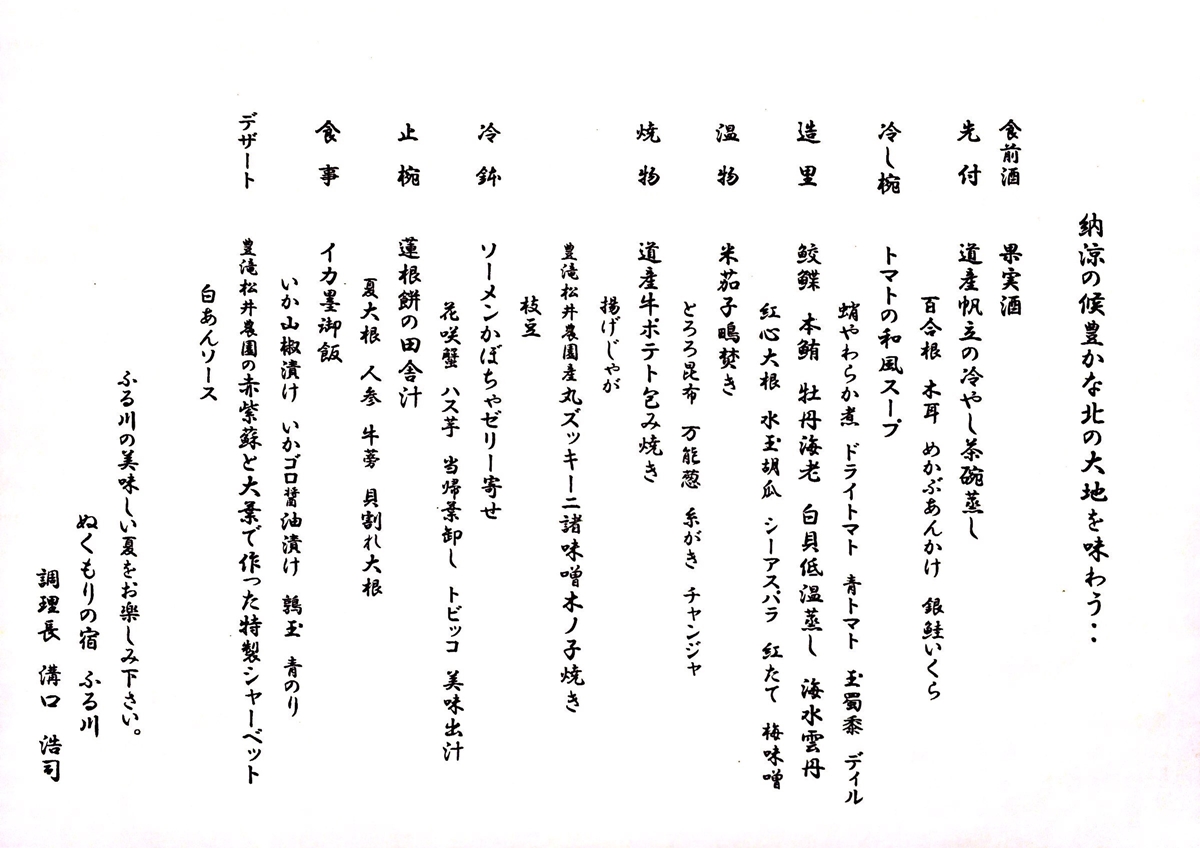 納涼の候豊かな北の大地を味わう・・
食前酒 果実酒
先付 道産帆立の冷やし茶碗蒸し
百合根 木耳 めかぶあんかけ 銀鮭いくら
冷し椀 トマトの和風スープ
蛸やわらか煮 ドライトマト 青トマト 玉蜀黍 ディル
造里 鮫鰈 本鮪 牡丹海老 白貝低温蒸し 海水雲丹
紅心大根 水玉胡瓜 シーアスパラ 紅たて 梅味噌
温物 米茄子鴫焚き
とろろ昆布 万能葱 糸がき チャンジャ
焼物 道産牛ポテト包み焼き
揚げじゃが
豊滝松井農園産丸ズッキーニ諸味噌木ノ子焼き
枝豆
冷鉢 ソーメンかぼちゃゼリー寄せ
花咲蟹 ハス芋 当帰葉卸し トビッコ 美味出汁
止椀 蓮根餅の田舎汁
夏大根 人参 牛蒡 貝割れ大根
食事 イカ墨御飯
いか山椒漬け いかゴロ醤油漬け 鶉玉 青のり
デザート 豊滝松井農園の赤紫蘇と大葉で作った特製シャーベット
白あんソース
ふる川の美味しい夏をお楽しみ下さい。
ぬくもりの宿 ふる川
調理長 溝口 浩司